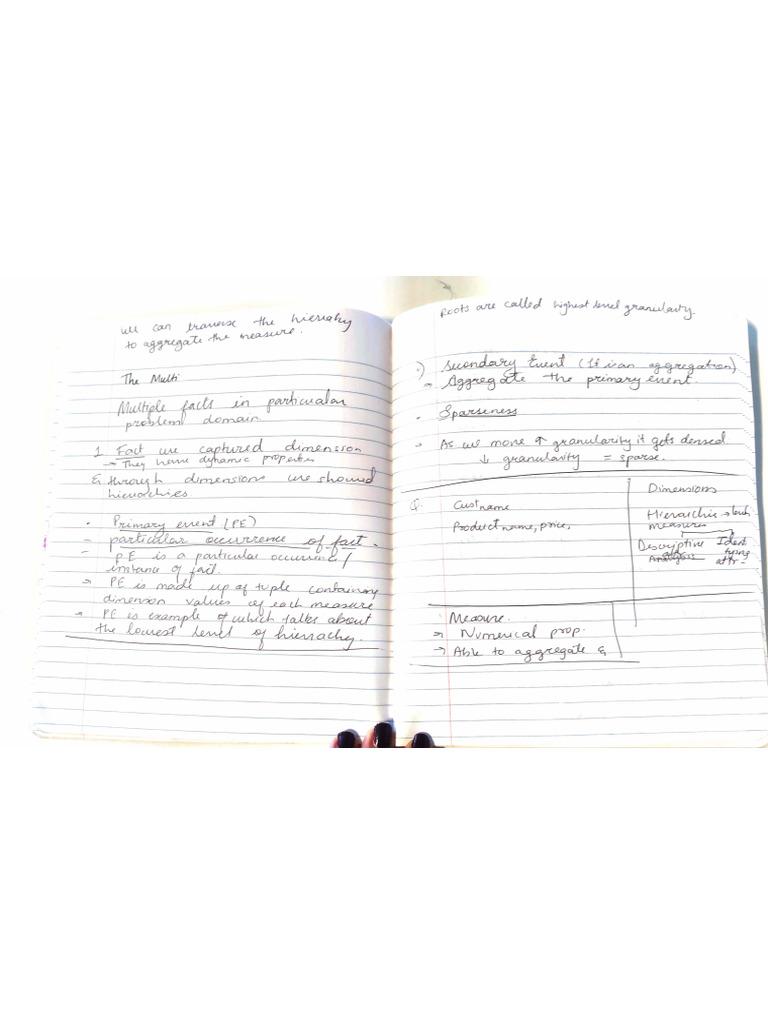 we can traverse the hierrahy
to aggregate the measure.
The Multi
Multiple facts in particualar
problem domain
1 Fact we captured dimension
→ They have dynamic properties
& through dimensions we showed
hierarchies
• Primary event (PE)
– particular occurrence of fact.
– PE is a particular occurrence/
instance of fact.
→ PE is made up of tuple containing
dimension values of each measure
→ PE is example of which talks about
the lowest level of hierrachy.
Roots are called highest level granularity.
•) Secondary Event (It is an aggregation)
→ Aggregate the primary event.
• Sparseness
→ As we move ↑ granularity it gets densed
↓ granularity = sparse.
Q. Custname
Productname, price,
Dimensions
Hierarchie →
measures
Descriptive Ident
tying
attr –
Measure.
→ Numerical prop.
→ Able to aggregate &